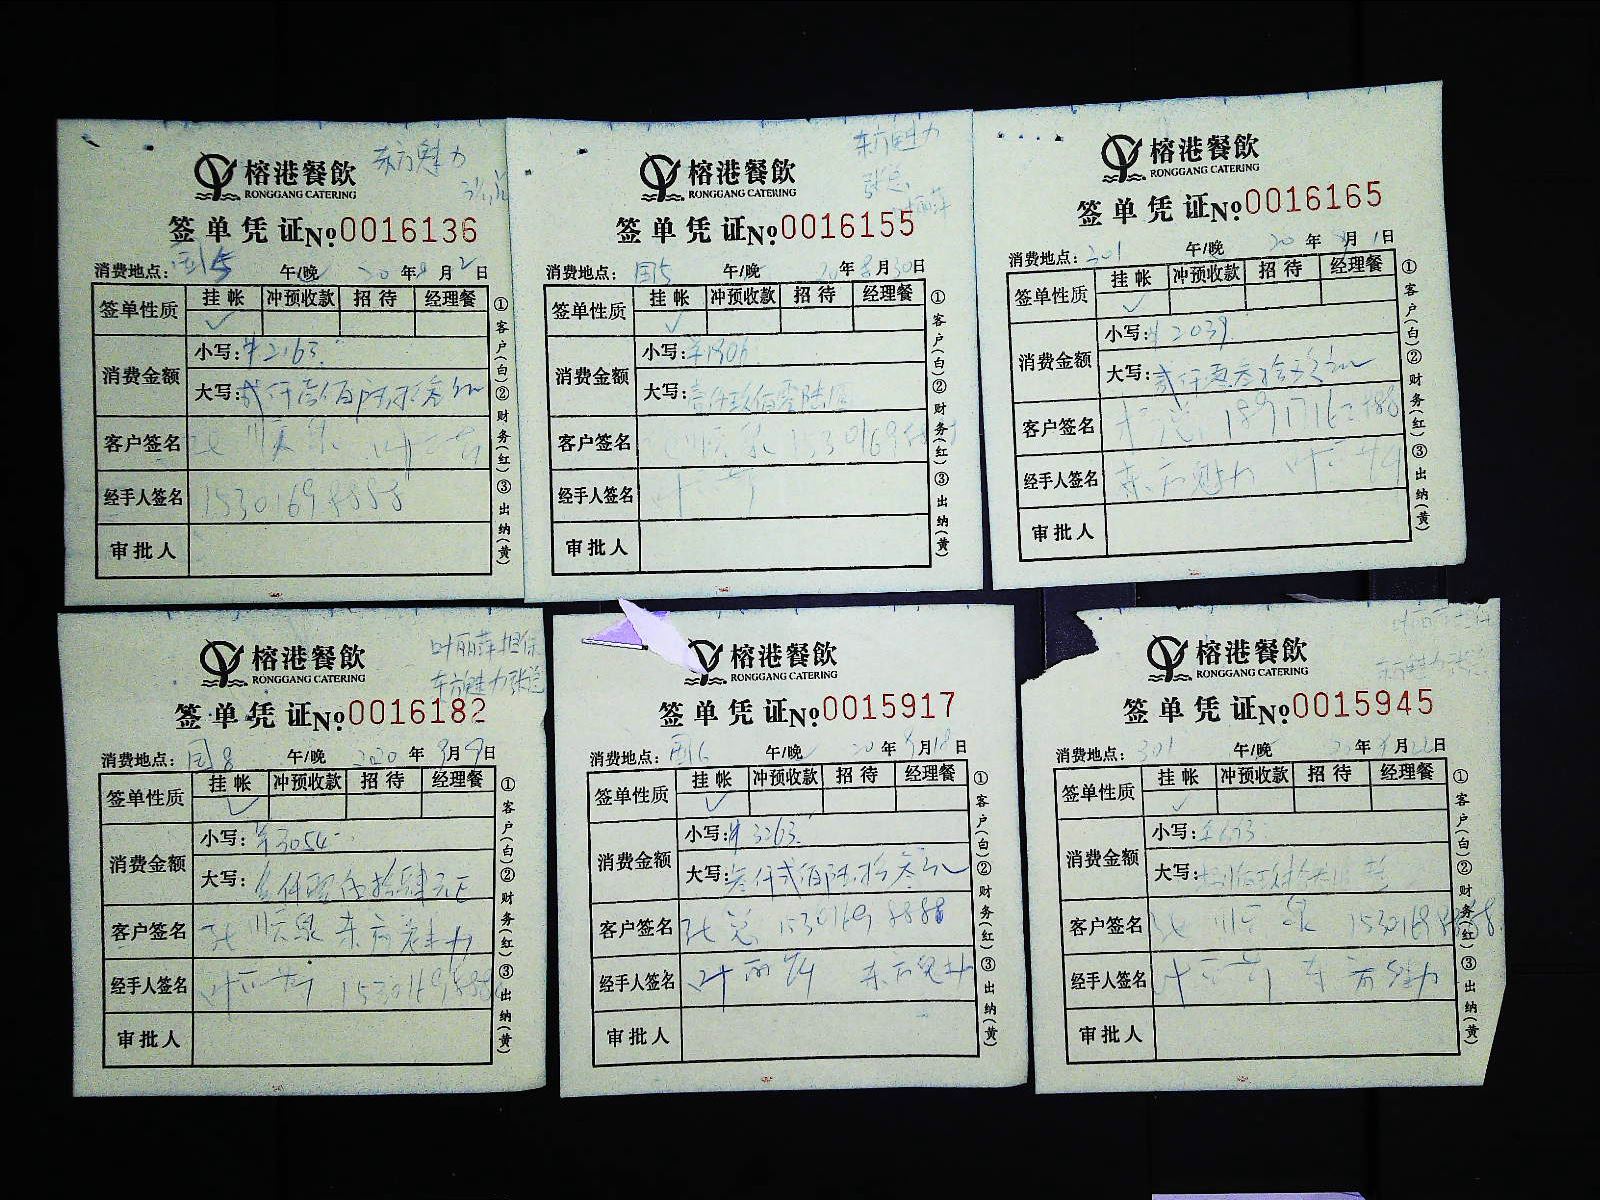 榕港餐飲
RONGGANG CATERING
东方魅力
签单凭证 No 0016136
消费地点: 国5 午/晚 20 年 月 2 日
签单性质 挂帐 冲预收款 招待 经理餐
✓
消费金额
小写: ¥2163
大写: 贰仟壹佰陆拾叁元
客户签名 张顺泉
经手人签名 15301698888
审批人
①客户(白)②财务(红)③出纳(黄)
榕港餐飲
RONGGANG CATERING
东方魅力
张总
叶丽萍
签单凭证 No 0016155
消费地点: 国5 午/晚 20 年 8 月 30 日
签单性质 挂帐 冲预收款 招待 经理餐
✓
消费金额
小写: ¥1906
大写: 壹仟玖佰零陆
客户签名 张顺泉 1530169
经手人签名 叶
审批人
①客户(白)②财务(红)③出纳(黄)
榕港餐飲
RONGGANG CATERING
签单凭证 No 0016165
消费地点: 301 午/晚 20 年 月 1 日
签单性质 挂帐 冲预收款 招待 经理餐
✓
消费金额
小写: ¥2039
大写: 贰仟零叁拾玖元
客户签名
经手人签名 东方魅力
审批人
①客户(白)②财务(红)③出纳(黄)
榕港餐飲
RONGGANG CATERING
叶丽萍担保
东方魅力张总
签单凭证 No 0016182
消费地点: 国8 午/晚 2020 年 9 月 9 日
签单性质 挂帐 冲预收款 招待 经理餐
✓
消费金额
小写: ¥3054
大写: 叁仟零伍拾肆元正
客户签名 张顺泉 东方魅力
经手人签名 叶丽萍 15301698888
审批人
①客户(白)②财务(红)③出纳(黄)
榕港餐飲
RONGGANG CATERING
签单凭证 No 0015917
消费地点: 国6 午/晚 20 年 月 18 日
签单性质 挂帐 冲预收款 招待 经理餐
✓
消费金额
小写: ¥3263
大写: 叁仟贰佰陆拾叁元
客户签名 张总 15301698888
经手人签名 叶丽萍 东方魅力
审批人
①客户(白)②财务(红)③出纳(黄)
榕港餐飲
RONGGANG CATERING
东方魅力张总
签单凭证 No 0015945
消费地点: 301 午/晚 20 年 月 22 日
签单性质 挂帐 冲预收款 招待 经理餐
✓
消费金额
小写:
大写:
客户签名 张顺泉
经手人签名 东方魅力
审批人
①客户(白)②财务(红)③出纳(黄)